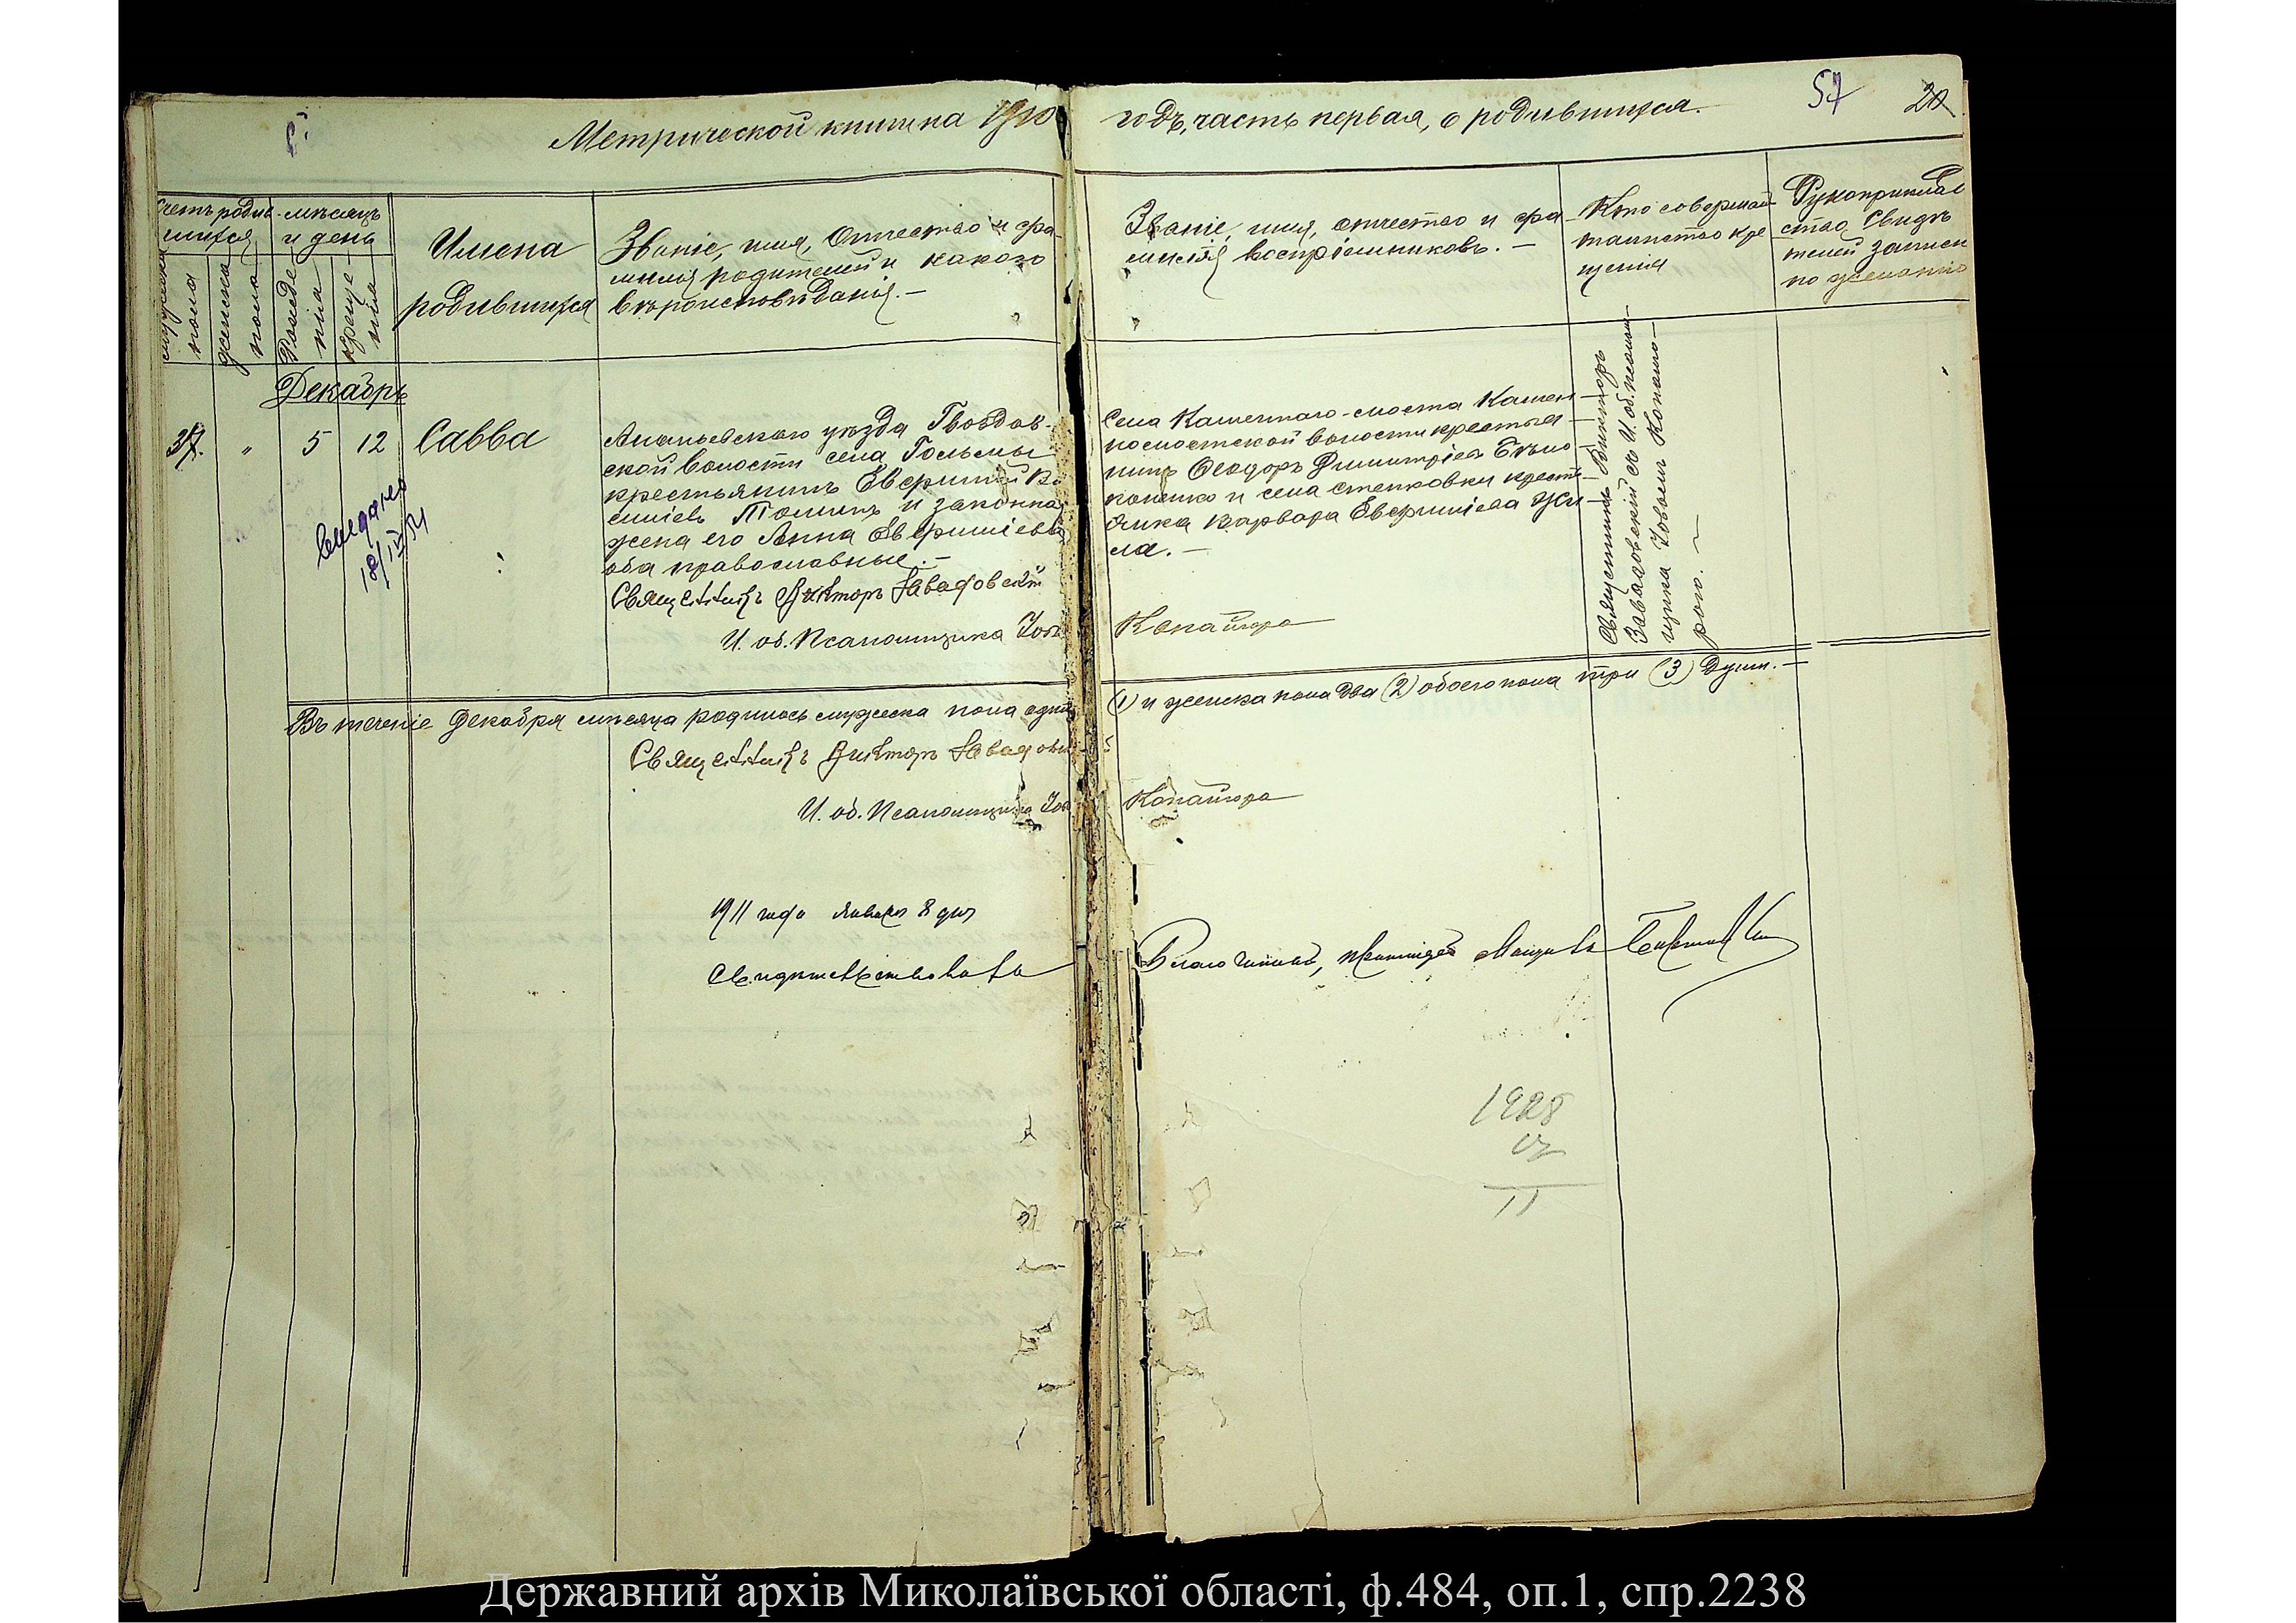 Метрической книги на 1910 годъ, часть первая, о родившихся.
57
20
Счетъ родив-
шихся
мужска пола
женска пола
мѣсяцъ
и день
Рожде-
нія
креще-
нія
Имена
родившихся
Званіе, имя, Отчество и фа-
милія родителей и какого
вѣроисповѣданія. –
Званіе, имя, отчество и фа-
милія воспріемниковъ. –
Кто совершалъ
таинство кре
щенія
Рукоприклад
ство свидѣ
телей записи
по желанію
Декабрь
37. " 5 12 Савва
Ананьевскаго уѣзда Гвоздов-
ской волости села Гольмы
крестьянинъ Евфимій Ва
силіевъ Томинъ и законная
жена его Анна Евфиміева
оба православные. –
Священникъ Викторъ Завадовскій
И. об. Псаломщика Іовъ Копайгора
Села Каменнаго-моста Камен-
номостской волости крестья-
нинъ Ѳеодоръ Димитріевъ Бѣло-
коненко и села Степковки кресть-
янка Варвара Евфиміева Жи-
ла. –
Священникъ Викторъ
Завадовскій съ И. об. псалом-
щика Іовомъ Копайго-
рою. –
Въ теченіе Декабря мѣсяца родилось мужска пола одинъ (1) и женска пола два (2) обоего пола три (3) Души. –
Священникъ Викторъ Завадовскій
И. об. Псаломщика Іовъ Копайгора
1911 года Января 8 дня
Свидѣтельствовалъ Благочинный,
1928
11
Державний архів Миколаївської області, ф.484, оп.1, спр.2238